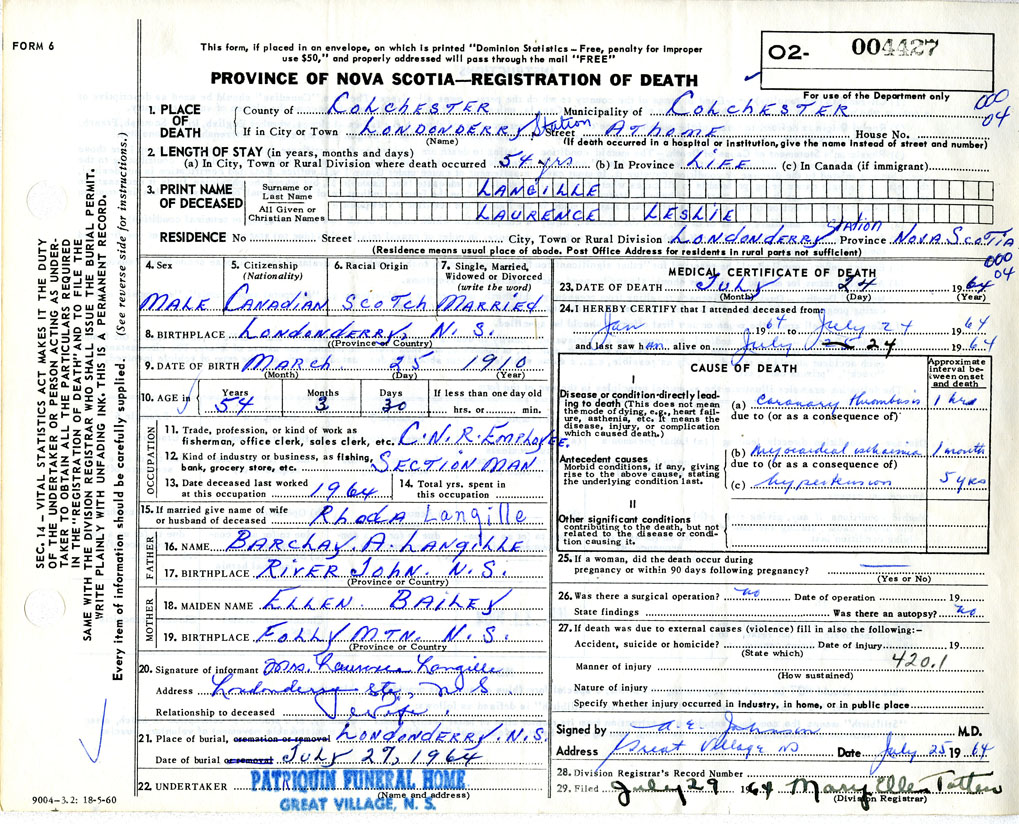 FORM 6
This form, if placed in an envelope, on which is printed "Dominion Statistics – Free, penalty for improper
use $50," and properly addressed will pass through the mail "FREE"
PROVINCE OF NOVA SCOTIA—REGISTRATION OF DEATH
O2- 004427
For use of the Department only
000
04
1. PLACE OF DEATH
County of COLCHESTER Municipality of COLCHESTER
If in City or Town LONDONDERRY Station Street AT HOME House No.
(Name) (If death occurred in a hospital or institution, give the name instead of street and number)
2. LENGTH OF STAY (in years, months and days)
(a) In City, Town or Rural Division where death occurred 54 yrs (b) In Province LIFE (c) In Canada (if immigrant)
3. PRINT NAME OF DECEASED
Surname or Last Name LANGILLE
All Given or Christian Names LAURENCE LESLIE
RESIDENCE No Street City, Town or Rural Division LONDONDERRY STATION Province NOVA SCOTIA
(Residence means usual place of abode. Post Office Address for residents in rural parts not sufficient)
000
04
4. Sex MALE
5. Citizenship (Nationality) CANADIAN
6. Racial Origin SCOTCH
7. Single, Married, Widowed or Divorced (write the word) MARRIED
8. BIRTHPLACE LONDONDERRY, N.S.
(Province or Country)
9. DATE OF BIRTH MARCH 25 1910
(Month) (Day) (Year)
10. AGE in Years 54 Months 3 Days 30 If less than one day old
hrs. or min.
OCCUPATION
11. Trade, profession, or kind of work as
fisherman, office clerk, sales clerk, etc. C.N.R. EMPLOYEE.
12. Kind of industry or business, as fishing,
bank, grocery store, etc. SECTION MAN
13. Date deceased last worked
at this occupation 1964
14. Total yrs. spent in
this occupation
15. If married give name of wife
or husband of deceased RHODA Langille
FATHER
16. NAME BARCLAY. A. LANGILLE
17. BIRTHPLACE RIVER JOHN. N.S.
(Province or Country)
MOTHER
18. MAIDEN NAME ELLEN BAILEY
19. BIRTHPLACE FOLLY MTN. N.S.
(Province or Country)
20. Signature of informant Mrs. Laurence Langille
Address Londonderry Sta, N S
Relationship to deceased Wife
21. Place of burial, cremation or removal LONDONDERRY. N.S.
Date of burial or removal JULY 27, 1964
22. UNDERTAKER PATRIQUIN FUNERAL HOME
(Name and address)
GREAT VILLAGE, N. S.
9004–3.2: 18-5-60
MEDICAL CERTIFICATE OF DEATH
23. DATE OF DEATH July 24 1964
(Month) (Day) (Year)
24. I HEREBY CERTIFY that I attended deceased from
Jan 1964 to July 24 1964
and last saw him alive on July 24 1964
CAUSE OF DEATH
Approximate interval between onset and death
I
Disease or condition directly leading to death (This does not mean the mode of dying, e.g., heart failure, asthenia, etc. It means the disease, injury, or complication which caused death.)
(a) Coronary thrombosis 1 hrs
due to (or as a consequence of)
Antecedent causes
Morbid conditions, if any, giving rise to the above cause, stating the underlying condition last.
(b) Myocardial ischaemia 1 month
due to (or as a consequence of)
(c) hypertension 5 yrs
II
Other significant conditions
contributing to the death, but not related to the disease or condition causing it.
25. If a woman, did the death occur during
pregnancy or within 90 days following pregnancy?
(Yes or No)
26. Was there a surgical operation? no Date of operation 19
State findings Was there an autopsy? no
27. If death was due to external causes (violence) fill in also the following:–
Accident, suicide or homicide? Date of injury 19
(State which)
Manner of injury 420.1
(How sustained)
Nature of injury
Specify whether injury occurred in industry, in home, or in public place
Signed by A E Johnson M.D.
Address Great Village NS Date July 25 1964
28. Division Registrar's Record Number
29. Filed July 29 1964 Mary Ellen Totten
(Division Registrar)
SEC. 14 – VITAL STATISTICS ACT MAKES IT THE DUTY
OF THE UNDERTAKER OR PERSON ACTING AS UNDERTAKER
TO OBTAIN ALL THE PARTICULARS REQUIRED
IN THE "REGISTRATION OF DEATH" AND TO FILE THE
SAME WITH THE DIVISION REGISTRAR WHO SHALL ISSUE THE BURIAL PERMIT.
WRITE PLAINLY WITH UNFADING INK. THIS IS A PERMANENT RECORD.
Every item of information should be carefully supplied. (See reverse side for instructions.)